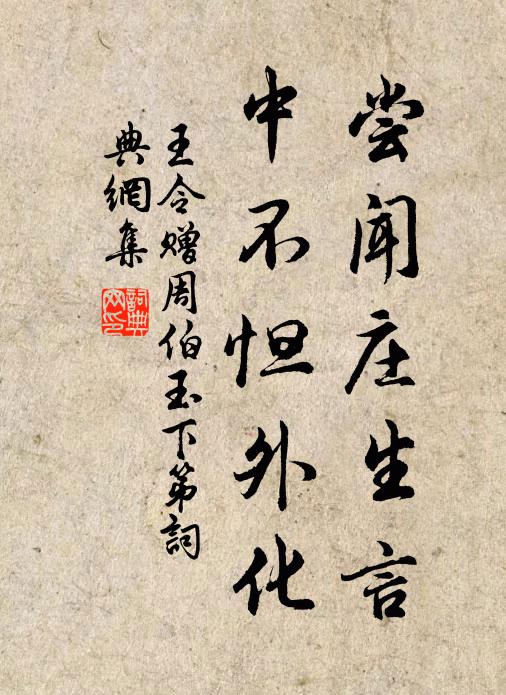 尝闻庄生言
中不怛外化
王令赠周伯玉下第词
典網集
詞典網印